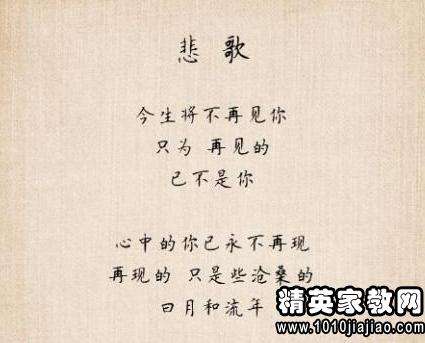 悲歌
今生将不再见你
只为 再见的
已不是你
心中的你已永不再现
再现的 只是些沧桑的
日月和流年
精英家教网
www.1010jiajiao.com